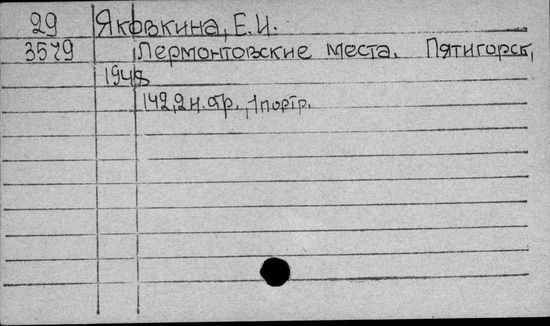 29 Яковкина, Е.И.
3579 Лермонтовские места. Пятигорск,
1948
142,2н.стр., 1портр.